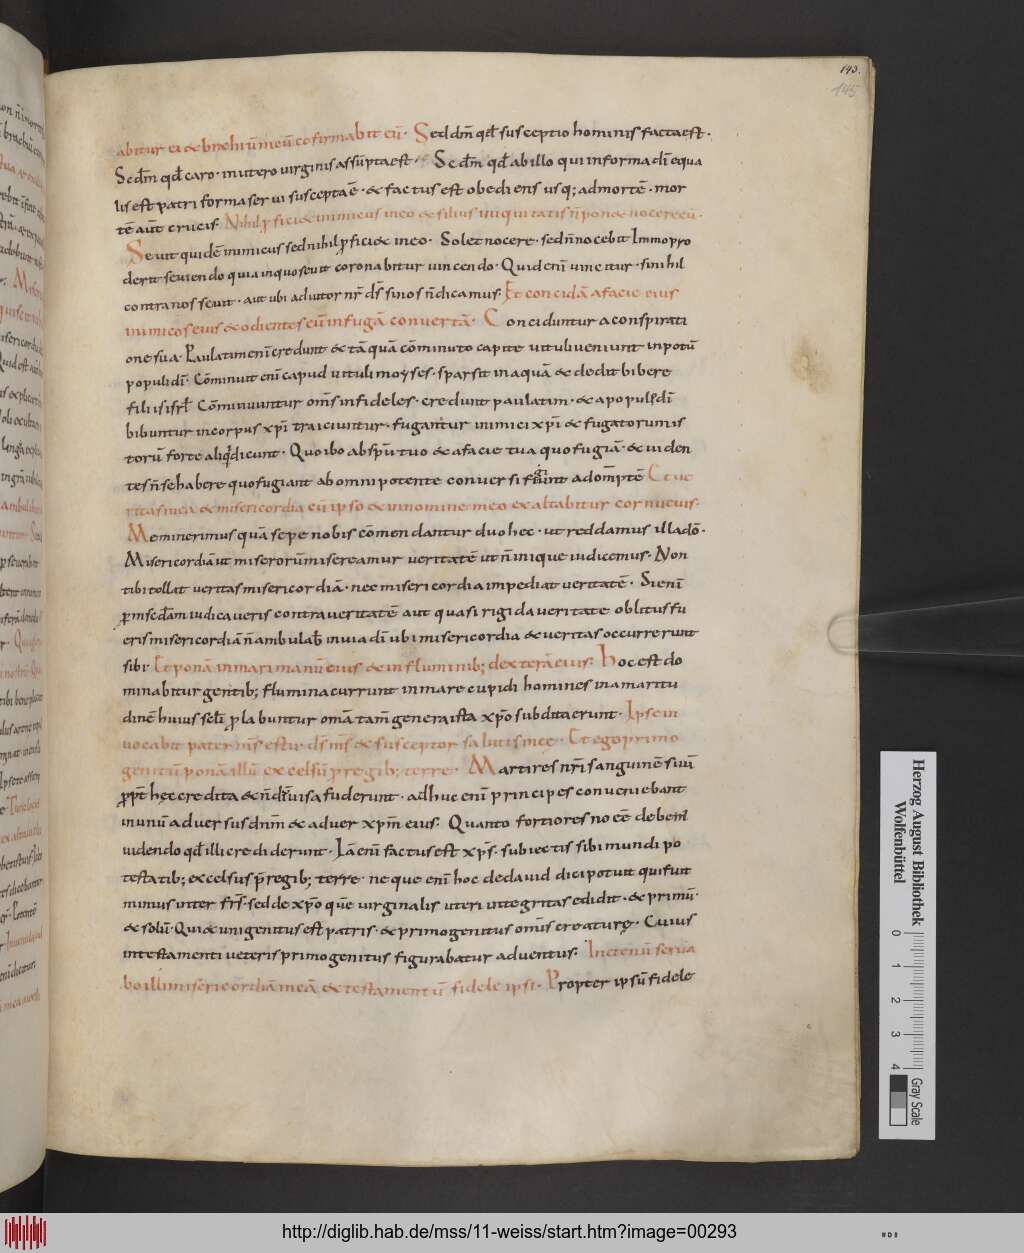 143.
145
abitur ei & brachiū meū cofirmabit eū· Secl dm̄ qđ susceptio hominis facta est·
Sc dm̄ qđ caro· in utero uirginis assūpta est· Sc dm̄ qđ ab illo qui in forma dī equa
lis est patri forma serui suscepta ē· & factus est obediens usq; ad mortē· mor
tē aūt crucis· Nihil ꝓficiet inimicus in eo & filius iniquitatis n̄ ponet nocere eū·
Seuit quidē inimicus sed nihil ꝓficiet in eo· Solet nocere· sed n̄ nocebit Immo pro
derit seuiendo quia in quo seuit coronabitur uincendo· Quid enī uincitur· si nihil
contra nos seuit· aut ubi adiutor nr̄ d̄s si nos n̄ dicamus· Et concidā a facie eius
inimicos eius & odientes eū in fugā conuertā· Conciduntur a conspirati
one sua· Paulatim enī credunt & tā quā cōminuto capite uituli ueniunt in potū
populi dī· Cōminuit enī capud uituli moyses· sparsit in aquā & dedit bibere
filiis isrl̄ Cōminuuntur om̄s infideles· credunt paulatim· & a populo dī
bibuntur in corpus xp̄i traiciuntur· fugantur inimici xp̄i & fugator unis
torū forte aliqđ dicunt· Quo ibo ab sp̄u tuo & a facie tua quo fugiā· & uiden
tes n̄ se habere quo fugiant ab omnipotente conuersi fugiunt ad om̄ptē Et ue
ritas mea & misericordia cū ipso & in nomine meo exaltabitur cornu eius·
Meminerimus quā sepe nobis cōmendantur duo hec· ut reddamus illa dō·
Misericordiā ut miserorū misereamur ueritatē ut n̄ inique iudicemus· Non
tibi tollat ueritas misericordiā· nec misericordia impediat ueritatē· Si enī
ꝑ mscđam iudicaueris contra ueritatē aut quasi rigida ueritate oblitus fu
eris misericordiā n̄ ambulab̄ in uia dī ubi misericordia & ueritas occurrerunt
sibi· Et ponā in mari manū eius & in fluminib; dexterā eius· Hoc est do
minabitur gentib; flumina currunt in mare cupidi homines in amaritu
dinē huius scl̄i prolabuntur omā tam̄ genera ista xp̄o subdita erunt· Ipse in
uocabit pater m̄s es tu· d̄s m̄s & susceptor salutis meę· Et ego primo
genitū ponā illū excelsū pre regib; terre· Martires nr̄i sanguinē suū
ꝓpt̄ hęc credita & n̄dū uisa fuderunt· adhuc enī principes conueniebant
in unū aduersus dnm̄ & aduer xpm̄ eius· Quanto fortiores nos eē debem̄
uidendo qđ illi crediderunt· Iā enī factus est xp̄s· subiectis sibi mundi po
testatib; excelsus p̄ regib; terre· neque enī hoc de dauid dici potuit qui fuit
minus inter fr̄s· sed de xp̄o quē uirginalis uteri integritas edidit· & primū·
& solū· Qui & unigenitus est patris· & primogenitus om̄is creaturę· Cuius
in testamenti ueteris primogenitus figurabatur aduentus· In eternū serua
bo illi misericordiā meā & testamentū fidele ipsi· Propter ipsū fidele
Herzog August Bibliothek
Wolfenbüttel
0 1 2 3 4
Gray Scale
http://diglib.hab.de/mss/11-weiss/start.htm?image=00293